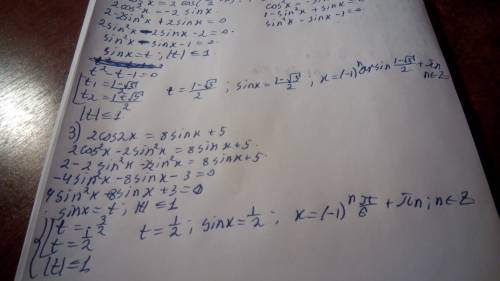 2cos²x = -2sinx
2-2sin²x+2sinx=0
2sin²x-2sinx-2=0
sin²x-sinx-1=0
sinx=t, |t|≤1
t²-t-1=0
t₁=(1-√5)/2
t₂=(1+√5)/2
|t|≤1
t=(1-√5)/2; sinx=(1-√5)/2; x=(-1)ⁿ arcsin (1-√5)/2+πn
n∈Z
1-sin²x+sinx=0
sin²x-sinx-1=0
3) 2cos2x=8sinx+5
2cos²x-2sin²x=8sinx+5
2-2sin²x-2sin²x=8sinx+5
-4sin²x-8sinx-3=0
4sin²x+8sinx+3=0
sinx=t; |t|≤1
t=1/2; sinx=1/2; x=(-1)ⁿ π/6+πn; n∈Z
|t|≤1